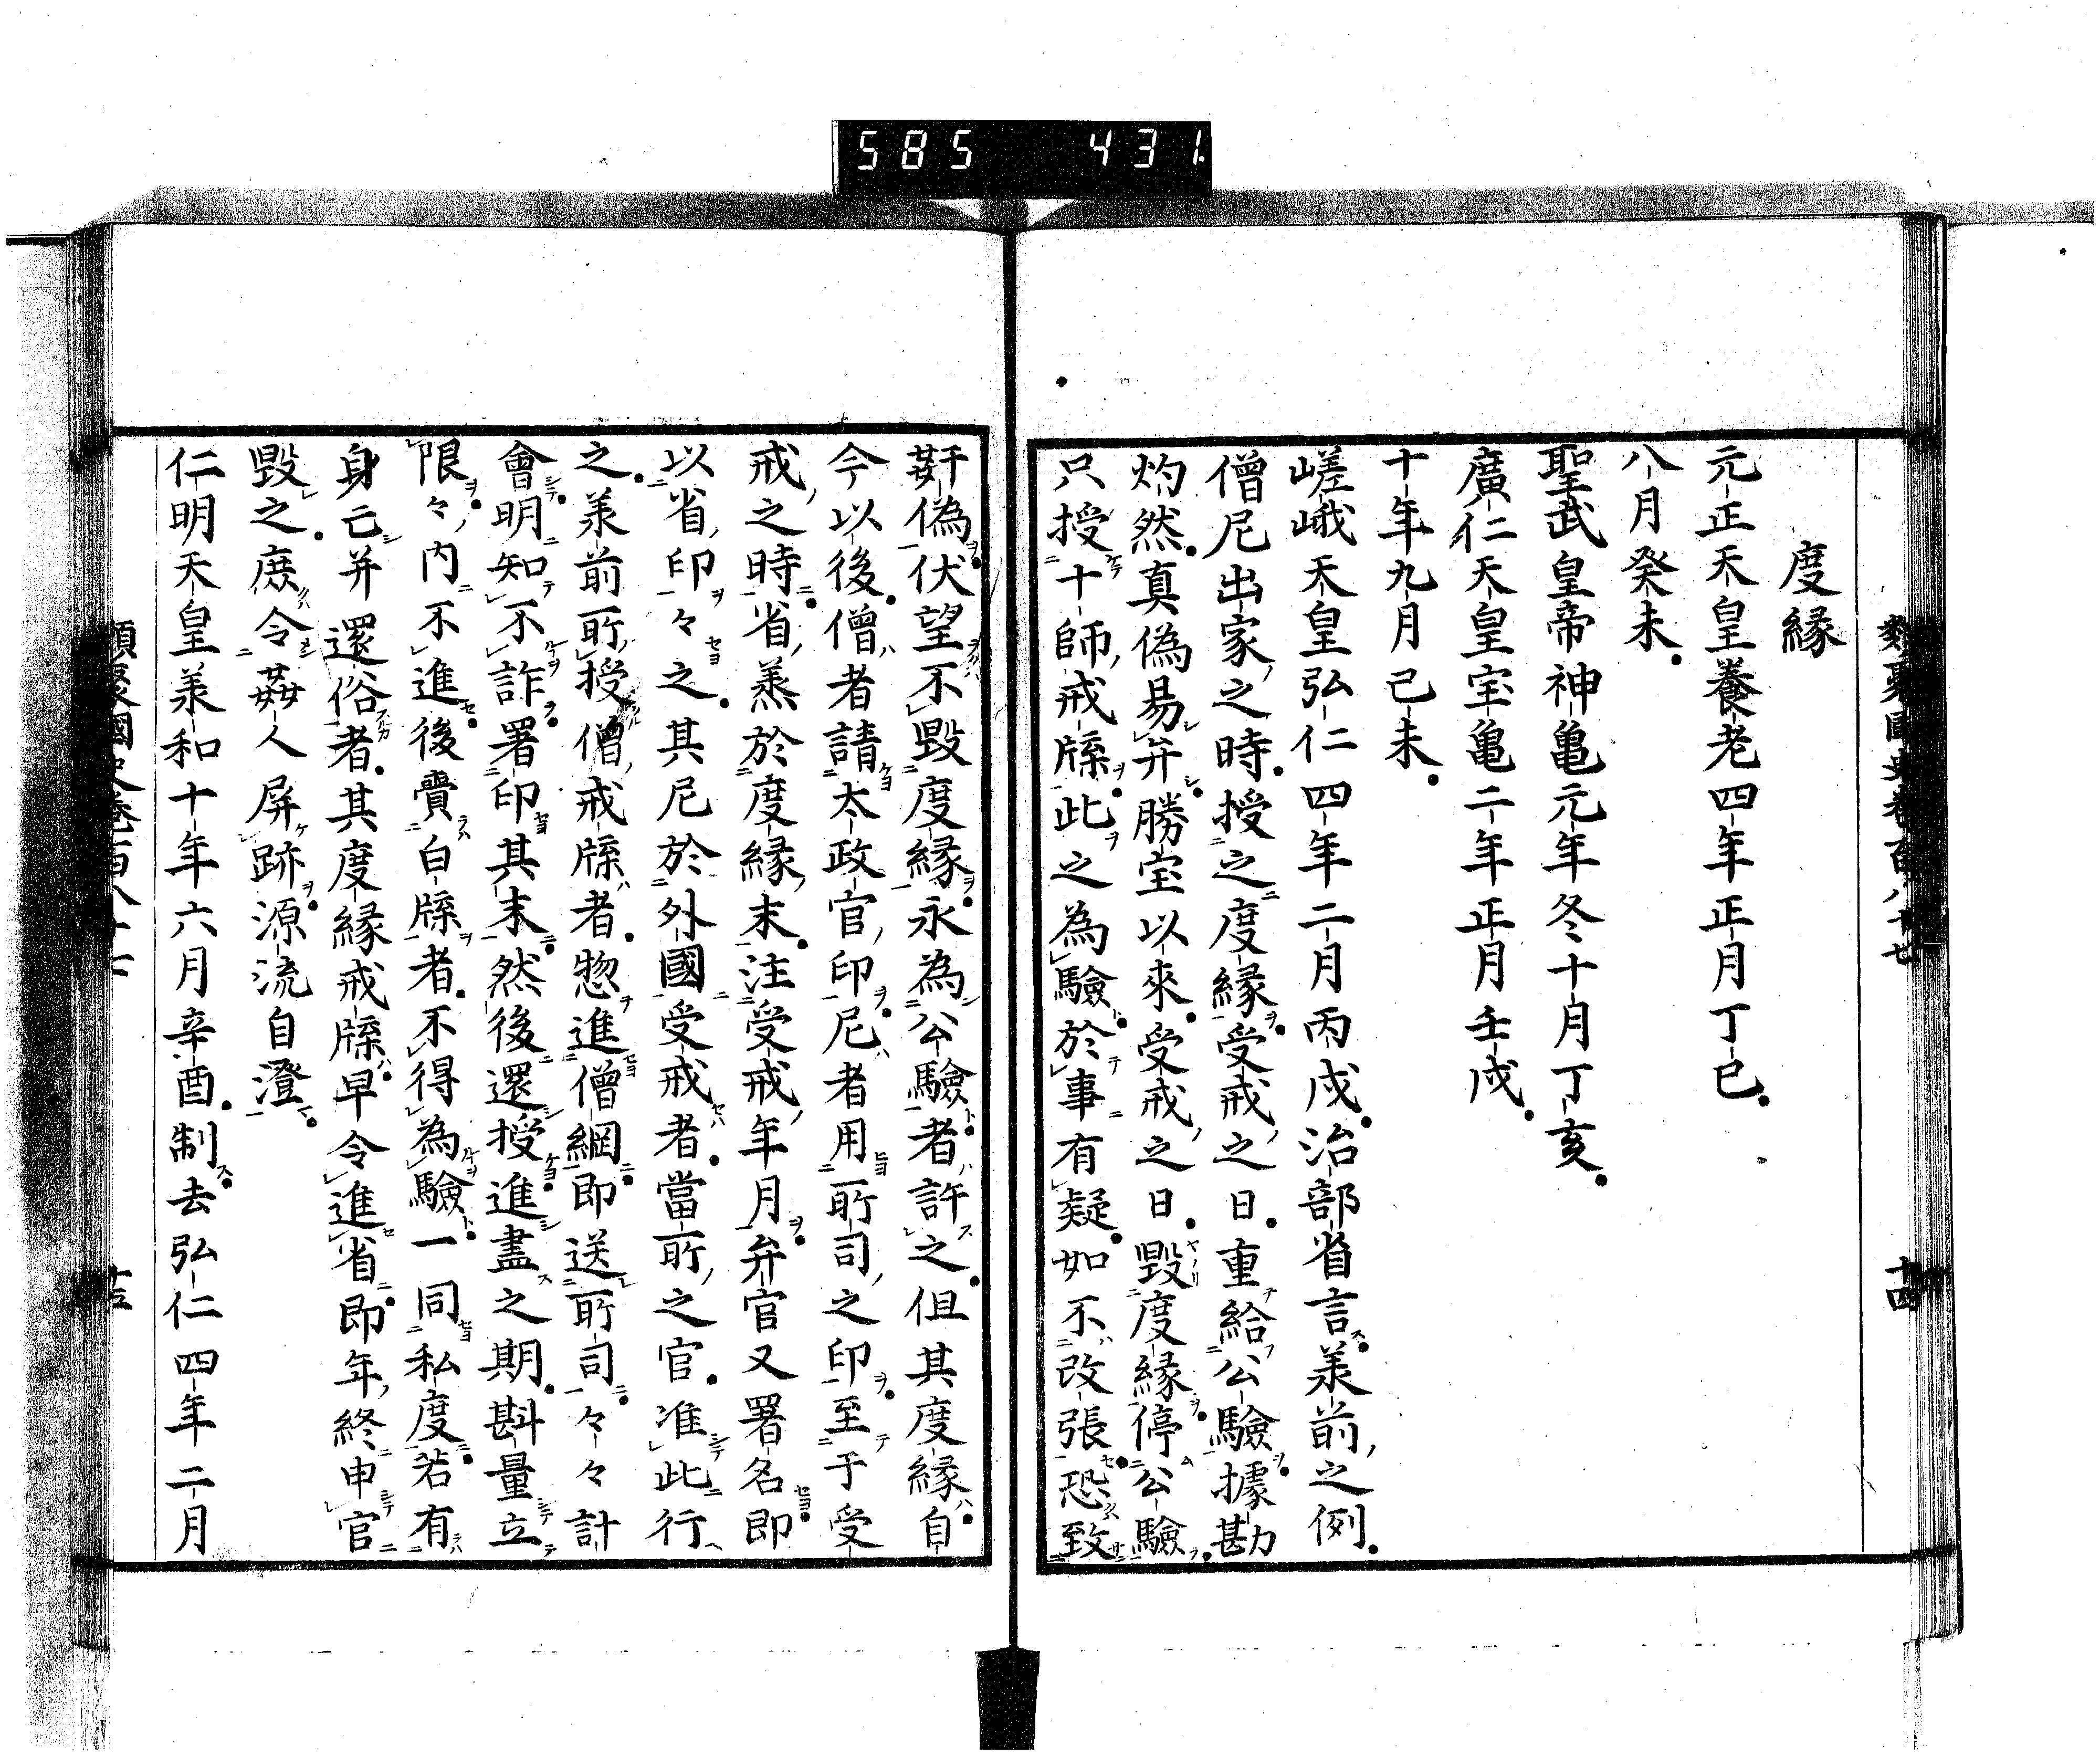 585 431.
類聚國史卷百八十七
十四
度縁
元正天皇養老四年正月丁巳
八月癸未
聖武皇帝神亀元年冬十月丁亥
廣仁天皇宝亀二年正月壬戌
十年九月己未
嵯峨天皇弘仁四年二月丙戌治部省言羕前之例
僧尼出家之時授之度縁受戒之日重給公驗據勘
灼然真偽易弁勝宝以來受戒之日毀度縁停公驗
只授十師戒牒此之為驗於事有疑如不改張恐致
姧偽伏望不毀度縁永為公驗者許之但其度縁自
今以後僧者請太政官印尼者用所司之印至于受
戒之時省羕於度縁末注受戒年月弁官又署名即
以省印々之其尼於外國受戒者當所之官准此行
之羕前所授僧戒牒者惣進僧綱即送所司々々計
會明知不詐署印其末然後還授進盡之期斟量立
限々内不進後賷白牒者不得為驗一同私度若有
身亡并還俗者其度縁戒牒早令進省即年終申官
毀之庶令姦人屏跡源流自澄
仁明天皇羕和十年六月辛酉制去弘仁四年二月
類聚國史卷百八十七
十五